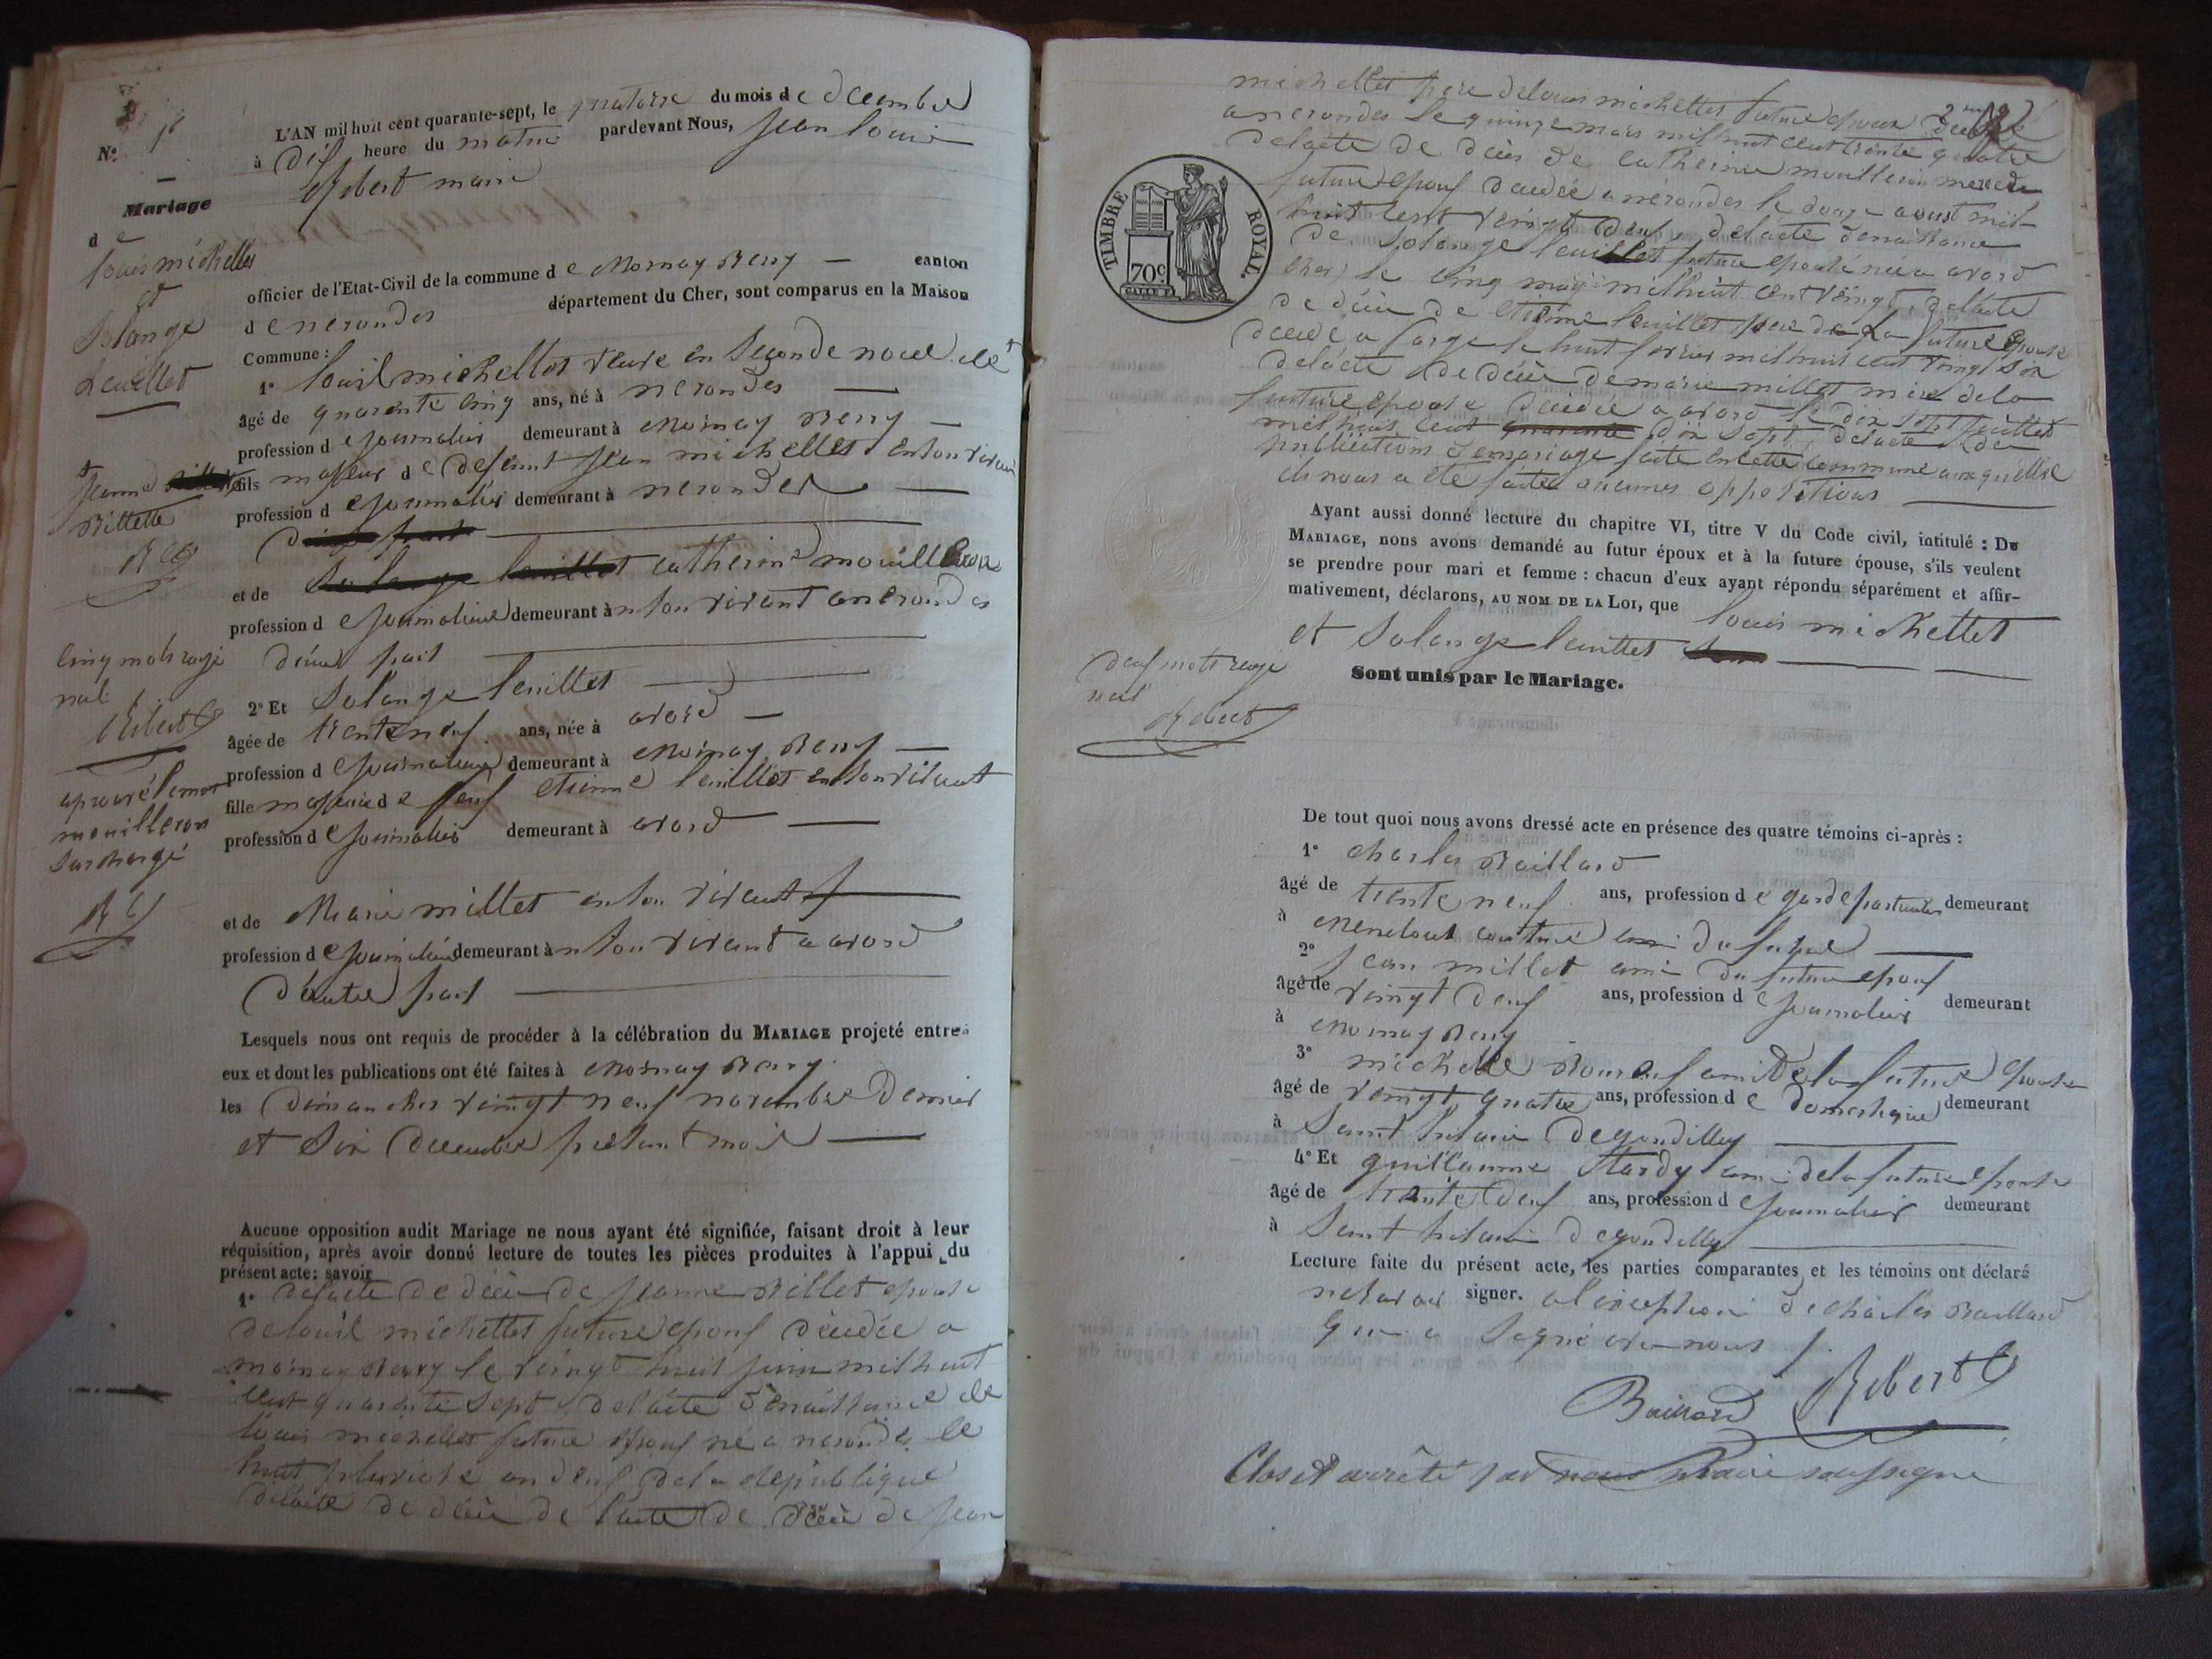 L'AN mil huit cent quarante-sept, le quatorze du mois de décembre
à dix heure du matin pardevant Nous, jean louis
Robert maire
N°
Mariage
d e
louis michellet
et
Solange
Leuillet
officier de l'Etat-Civil de la commune d e Mornay Berry — canton
d e nerondes département du Cher, sont comparus en la Maison
Commune :
1° louis michellet veuve en seconde noce de
âgé de quarante cinq ans, né à nerondes
profession d e journalier demeurant à Mornay Berry
fils majeur d e defunt jean michellet en son vivant
profession d e journalier demeurant à nerondes
jeanne
Billette
et de catherine mouilleron
profession d e journaliere demeurant à n son vivant a nerondes
d'une part
cinq mots rayé
nul
Robert
2° Et Solange leuillet
âgée de trente neuf ans, née à avord
profession d e journaliere demeurant à Mornay Berry
fille majeure d e feuf etienne leuillet en son vivant
profession d e journalier demeurant à avord
approuvé le mot
mouilleron
surchargé
et de Marie millet en son vivant
profession d e journaliere demeurant à n son vivant a avord
d'autre part
Lesquels nous ont requis de procéder à la célébration du MARIAGE projeté entre
eux et dont les publications ont été faites à Mornay Berry
les dimanches vingt neuf novembre dernier
et six decembre present mois
Aucune opposition audit Mariage ne nous ayant été signifiée, faisant droit à leur
réquisition, après avoir donné lecture de toutes les pièces produites à l'appui du
présent acte: savoir
1° delacte de décè de jeanne Billet epouse
delouis michellet future epouf décédée a
mornay Berry le vingt huit juin mil huit
cent quarante sept, delacte denaissance de
louis michellet future epouf né a nerondes le
huit pluviose an deuf dela republique
delacte de décè de lacte de décè de jean
michellet pere delouis michellet future epoux décédé
a nerondes le quinze mars mil huit cent trente quatre
delacte de décès de catherine mouilleron mere du
future epouf décédée a nerondes le douze aoust mil
huit cent vingt deuf, delacte denaissance
de Solange leuillet future epouse née a avord
cher) le cinq mai milhuit cent vingt, delacte
de décè de etienne leuillet pere de la future epouse
décédé a farge le huit fevrier mil huit cent vingt six
delacte de décè demarie millet mere dela
future epouse décédée a avord le dix sept juillet
mil huit cent quarante dix sept, delacte de
publications demariage faite en cette commune aux quelle
ils nous a été faites aucunes oppositions
TIMBRE ROYAL.
70c
Ayant aussi donné lecture du chapitre VI, titre V du Code civil, intitulé : DU
MARIAGE, nous avons demandé au futur époux et à la future épouse, s'ils veulent
se prendre pour mari et femme : chacun d'eux ayant répondu séparément et affir-
mativement, déclarons, AU NOM DE LA LOI, que louis michellet
et Solange leuillet
deuf mots rayé
nul
Robert
Sont unis par le Mariage.
De tout quoi nous avons dressé acte en présence des quatre témoins ci-après :
1° charles Baillard
âgé de trente neuf ans, profession d e garde particulier demeurant
à Menetout couture ami du future
2° jean millet ami du future epouf
âgé de vingt deuf ans, profession d e journalier demeurant
à Mornay Berry
3° michelle ami dela future epouse
âgé de vingt quatre ans, profession d e domestique demeurant
à Saint hilaire degondilly
4° Et guillaume Hardy ami dela future epouse
âgé de trante deuf ans, profession d e journalier demeurant
à Saint hilaire degondilly
Lecture faite du présent acte, les parties comparantes et les témoins ont déclaré
signer. alexception de charles Baillard
qui a signé avec nous
Baillard Robert
Clos et arrêté par nous Maire soussigné